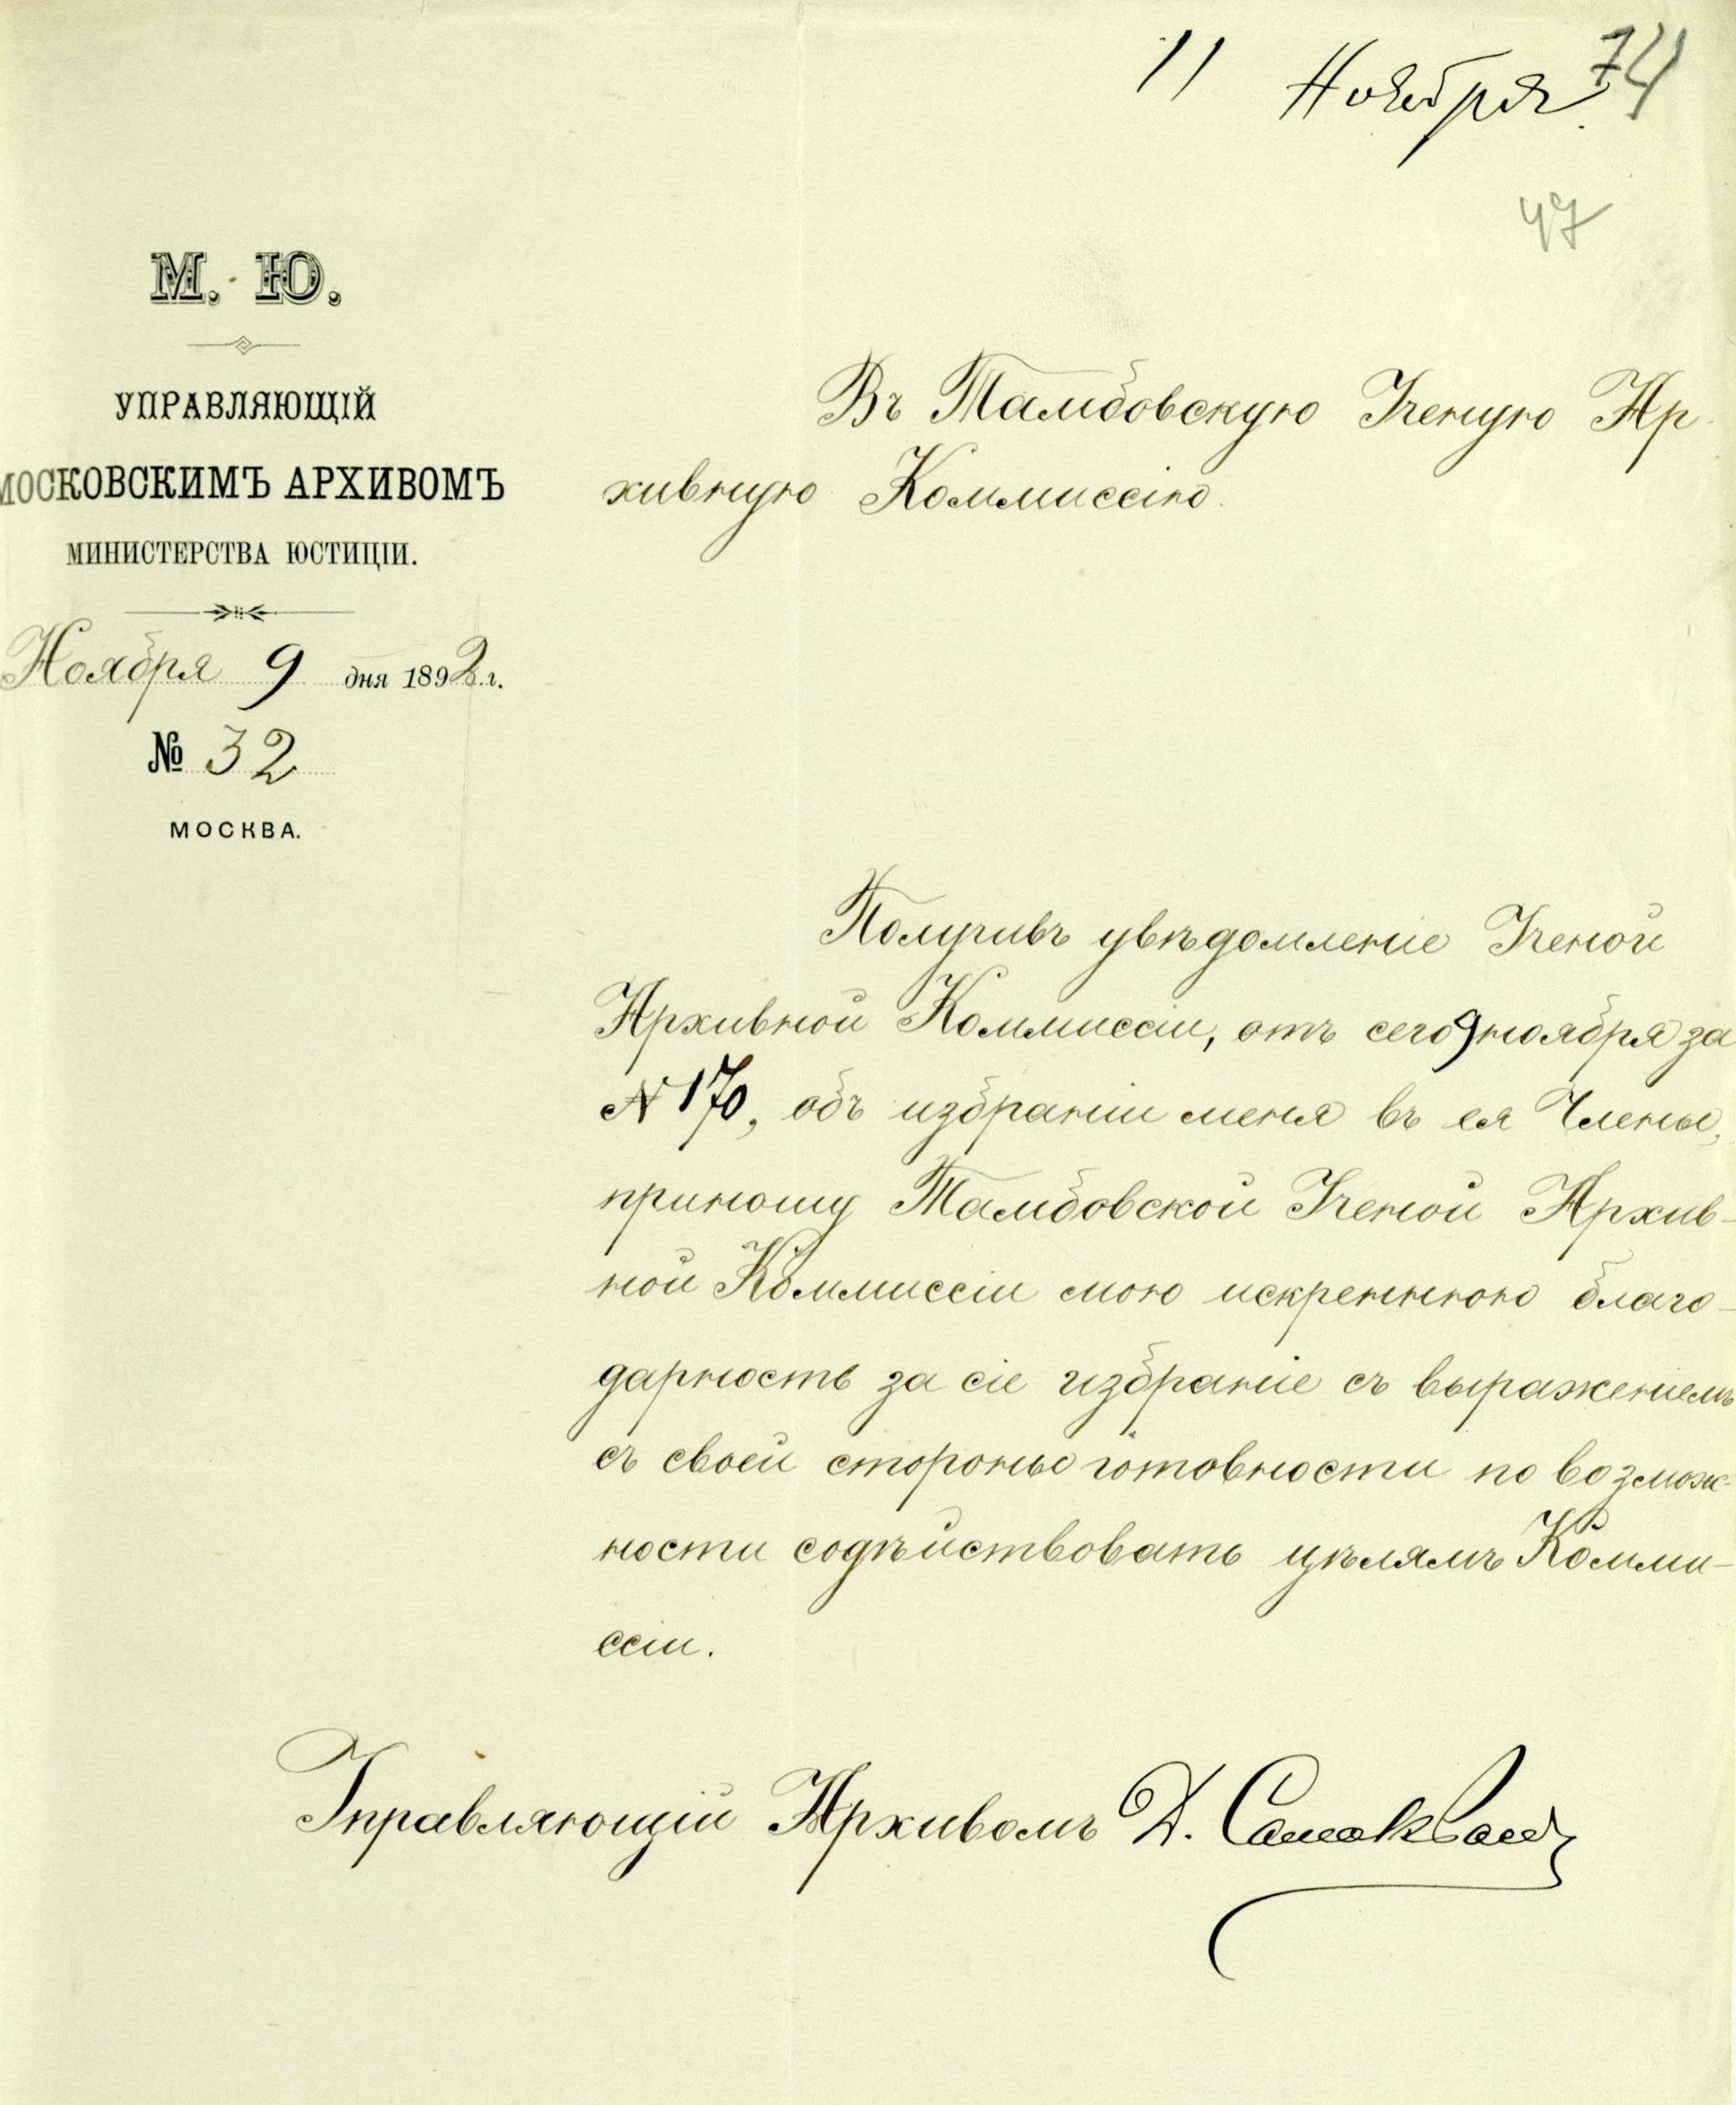 11 Ноября.
74
47
М. Ю.
УПРАВЛЯЮЩІЙ
МОСКОВСКИМЪ АРХИВОМЪ
МИНИСТЕРСТВА ЮСТИЦІИ.
Ноября 9 дня 1892 г.
№ 32
МОСКВА.
Въ Тамбовскую Ученую Ар-
хивную Коммиссію.
Получивъ увѣдомленіе Ученой
Архивной Коммиссіи, отъ сего 9 ноября за
№ 170, объ избраніи меня въ ея Члены,
приношу Тамбовской Ученой Архив-
ной Коммиссіи мою искреннюю благо-
дарность за сіе избраніе съ выраженіемъ
съ своей стороны готовности по возмож-
ности содѣйствовать цѣлямъ Комми-
ссіи.
Управляющій Архивомъ Д. Самоквасов